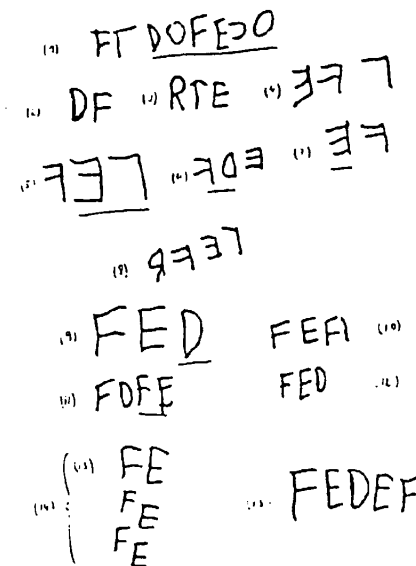 (1) FT DOFEƆO
(2) DF (3) RTE (4) Ǝꟻ⅂
(5) ꟻƎ⅂ (6) ꟻ0Ǝ (7) Ǝꟻ
(8) ꟻƎ⅂
(9) FED FEFI (10)
(11) FDFE FED (12)
(13) FE
(14) FE
FE
(15) FEDEF